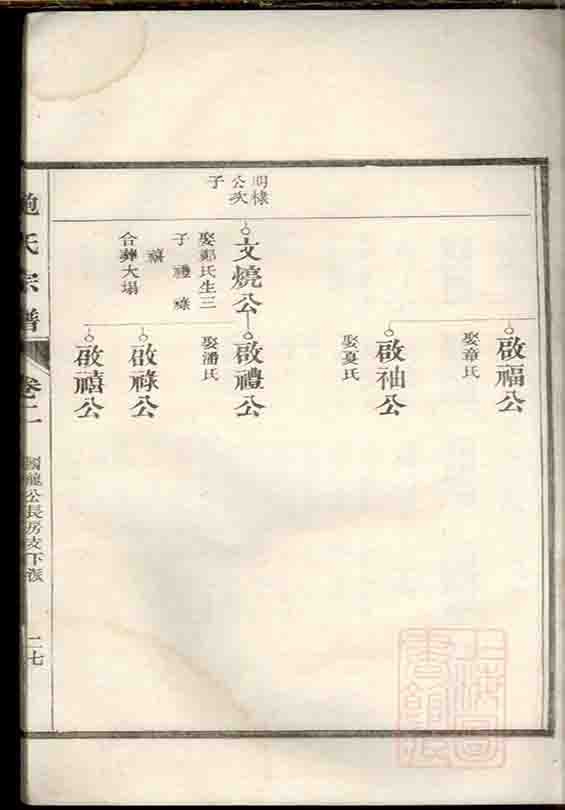 啟福公
娶章氏
啟袖公
娶夏氏
明棣
公次
子
文燒公
娶鄭氏生三
子禮祿
禧
合葬大塲
啟禮公
娶潘氏
啟祿公
啟禧公
氏宗譜
卷二
國龍公長房支下派
二七
上海圖
書館藏